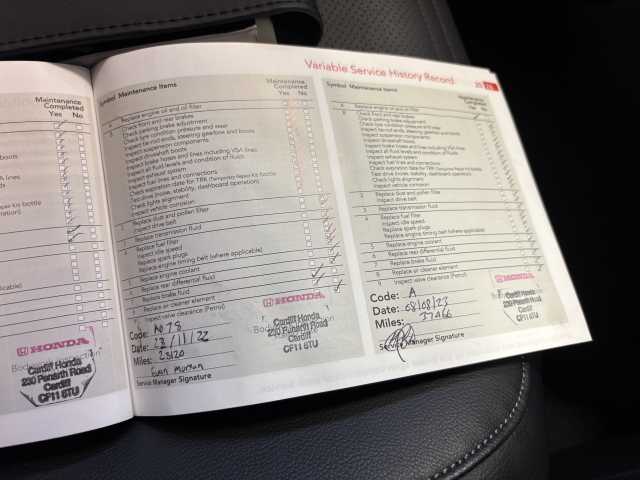 Variable Service History Record
Maintenance
Completed
Yes No
HONDA
Cardiff Honda
230 Penarth Road
Cardiff
CF11 8TU
Symbol Maintenance Items
Maintenance
Completed
Yes No
Replace engine oil and oil filter
Check front and rear brakes
Check parking brake adjustment
Check tyre condition pressure and wear
Inspect tie rod ends, steering gearbox and boots
Inspect suspension components
Inspect driveshaft boots
Check brake hoses and lines including VSA lines
Inspect all fluid levels and condition of fluids
Inspect exhaust system
Inspect fuel lines and connections
Check expiration date for TRK (Temporary Repair Kit bottle
Test drive (noise, stability, dashboard operation)
Check lights alignment
Inspect vehicle corrosion
Replace dust and pollen filter
Inspect drive belt
Replace transmission fluid
Replace fuel filter
Inspect idle speed
Replace spark plugs
Replace engine timing belt (where applicable)
Replace engine coolant
Replace rear differential fluid
Replace brake fluid
Replace air cleaner element
Inspect valve clearance (Petrol)
Code:
Date: 23/11/22
Miles: 23120
Evan Morgan
Service Manager Signature
HONDA
Cardiff Honda
230 Penarth Road
Cardiff
CF11 8TU
Symbol Maintenance Items
Maintenance
Completed
Yes No
A Replace engine oil and oil filter
B Check front and rear brakes
Check parking brake adjustment
Check tyre condition pressure and wear
Inspect tie rod ends, steering gearbox and boots
Inspect suspension components
Inspect driveshaft boots
Check brake hoses and lines including VSA lines
Inspect all fluid levels and condition of fluids
Inspect exhaust system
Inspect fuel lines and connections
Check expiration date for TRK (Temporary Repair Kit bottle
Test drive (noise, stability, dashboard operation)
Check lights alignment
Inspect vehicle corrosion
2 Replace dust and pollen filter
Inspect drive belt
3 Replace transmission fluid
4 Replace fuel filter
Inspect idle speed
Replace spark plugs
Replace engine timing belt (where applicable)
5 Replace engine coolant
6 Replace rear differential fluid
7 Replace brake fluid
8 Replace air cleaner element
9 Inspect valve clearance (Petrol)
Code: A
Date: 08/08/23
Miles: 37066
Service Manager Signature
HONDA
Cardiff Honda
230 Penarth Road
Cardiff
CF11 8TU